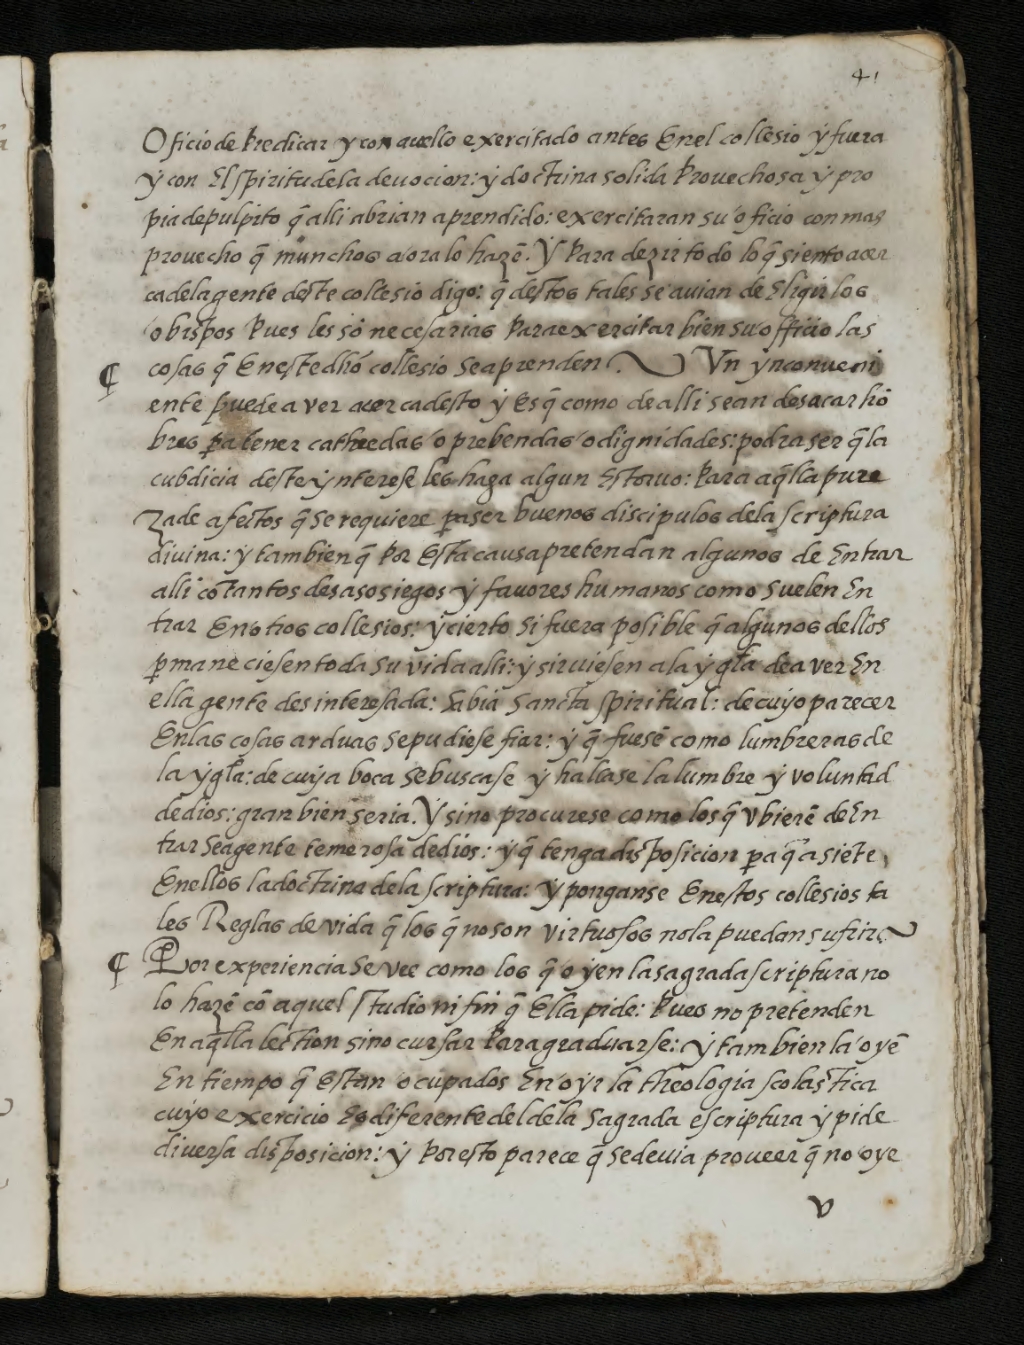 41
Oficio de Predicar y con auello exercitado antes En el collesio ÿ fuera
ÿ con El spiritu de la deuocion: ÿ doctrina solida Prouechosa ÿ pro
pia de pulpito q̃ alli abrian aprendido: exercitaran su oficio con mas
prouecho q̃ munchos aora lo hazẽ. Ÿ Para dezir todo lo q̃ siento acer
ca de la gente deste collesio digo: q̃ destos tales se auian de Eligir los
obispos Pues les sõ necesarias Para exercitar bien su officio las
¶ cosas q̃ En este dhõ collesio se aprenden. Vn ÿnconueni
ente puede aver acerca desto ÿ Es q̃ como de alli sean de sacar hõ
bres ꝑa tener cathredas o prebendas o dignidades: podra ser q̃ la
cubdicia deste ÿnterese les haga algun Estoruo: Para aq̃lla pure
zade afectos q̃ se requiere ꝑa ser buenos discipulos de la scriptura
divina: ÿ tambien q̃ Por Esta causa pretendan algunos de Entrar
alli cõ tantos desasosiegos ÿ fauores humanos como suelen En
trar En otros collesios: ÿ cierto si fuera posible q̃ algunos dellos
ꝑmaneciesen toda su vida alli: ÿ siruiesen a la ÿgl̃a de aver En
ella gente desinteresada: Sabia Sancta spiritual: de cuyo parecer
En las cosas arduas se pudiese fiar: ÿ q̃ fuesẽ como lumbreras de
la ÿgl̃a: de cuya boca se buscase ÿ hallase la lumbre ÿ voluntad
de dios: gran bien seria. Ÿ sino procurese como los q̃ vbierẽ de En
trar sea gente temerosa de dios: ÿ q̃ tenga disposicion ꝑa q̃ asiete
En ellos la doctrina de la scriptura: ÿ ponganse En estos collesios ta
les Reglas de vida q̃ los q̃ no son virtuosos no la puedan sufrir.
¶ Por experiencia se vee como los q̃ oyen la sagrada scriptura no
lo hazẽ cõ aquel studio ni fin q̃ Ella pide: Pues no pretenden
En aq̃lla lection sino cursar Para graduarse: ÿ tambien la oyẽ
En tiempo q̃ Estan ocupados En oÿr la theologia scolastica
cuyo exercicio Es diferente del de la Sagrada escriptura ÿ pide
diversa disposicion: ÿ Por esto parece q̃ se devia proveer q̃ no oye
v